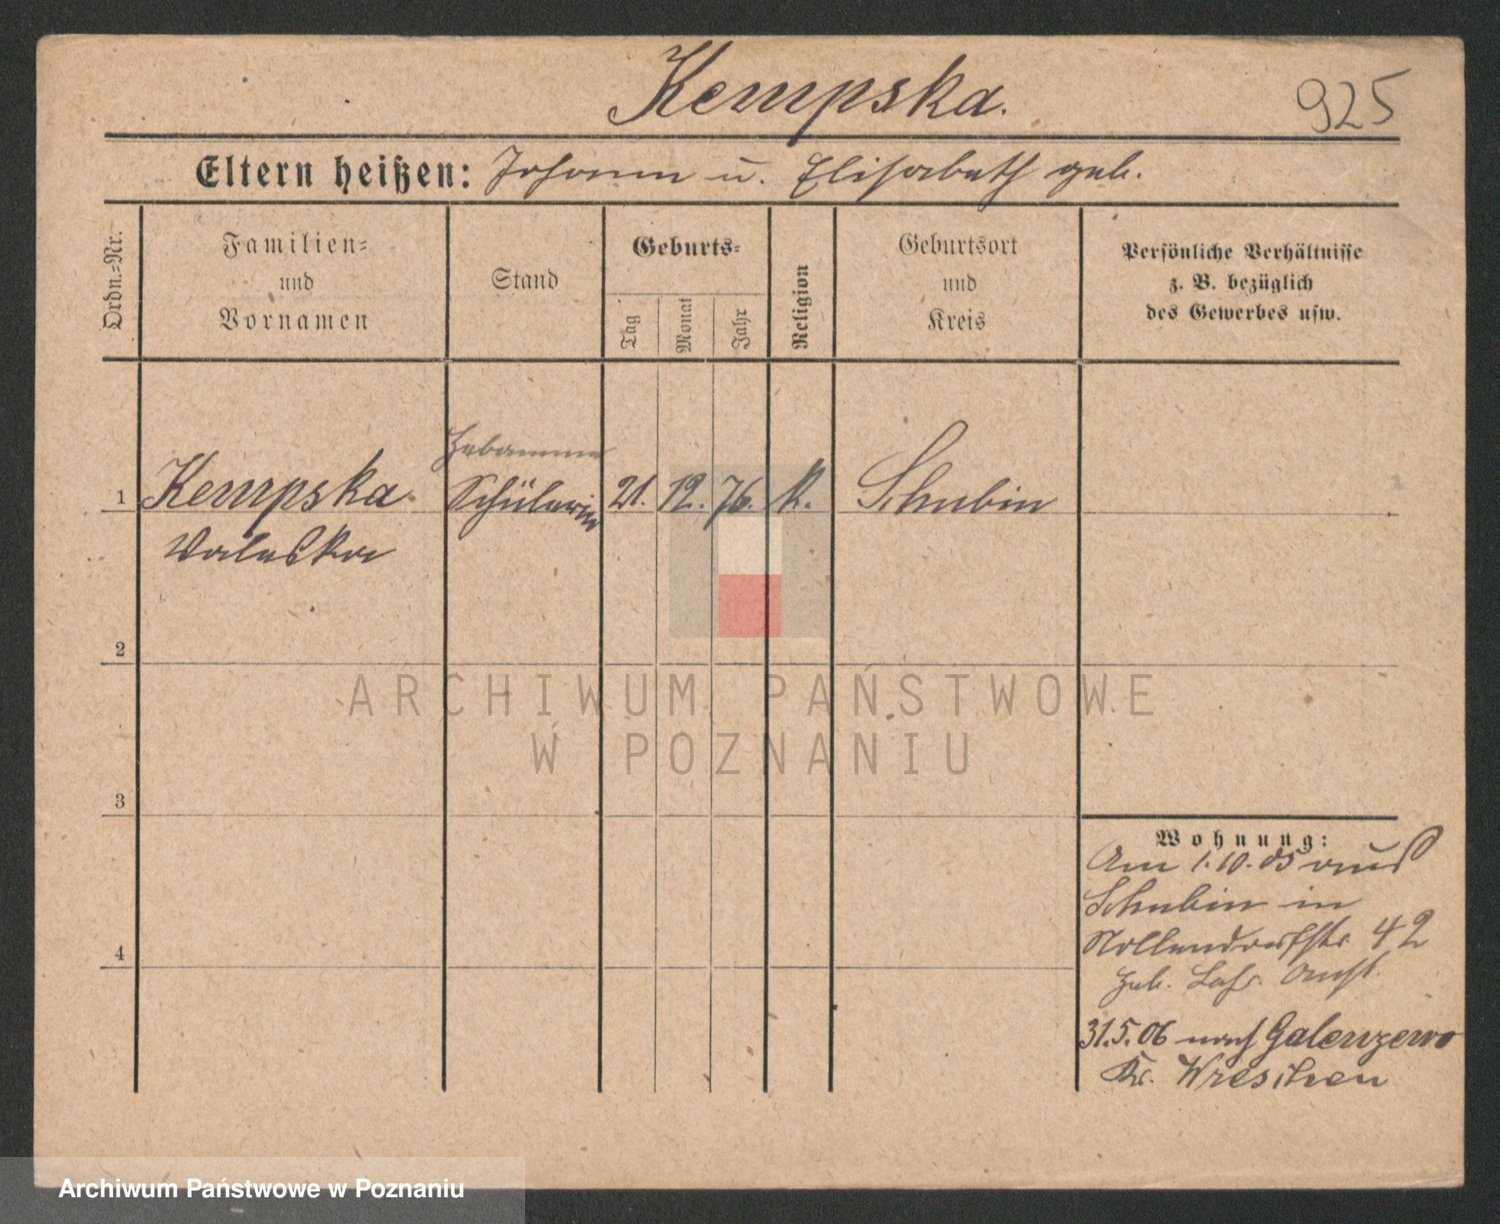 Kempska.
925
Eltern heißen: Johann u. Elisabeth geb.
Ordn.=Nr.
Familien=
und
Vornamen
Stand
Geburts=
Tag
Monat
Jahr
Religion
Geburtsort
und
Kreis
Persönliche Verhältnisse
z. B. bezüglich
des Gewerbes usw.
Hebamme
1 Kempska Schülerin 21. 12. 76. k. Schubin
Valeska
2
3
4
Wohnung:
Am 1.10.05 aus
Schubin in
Nollendorfstr. 42
Heb. Lehr. Anst.
31.5.06 nach Galenzewo
Kr. Wreschen
ARCHIWUM PAŃSTWOWE
W POZNANIU
Archiwum Państwowe w Poznaniu